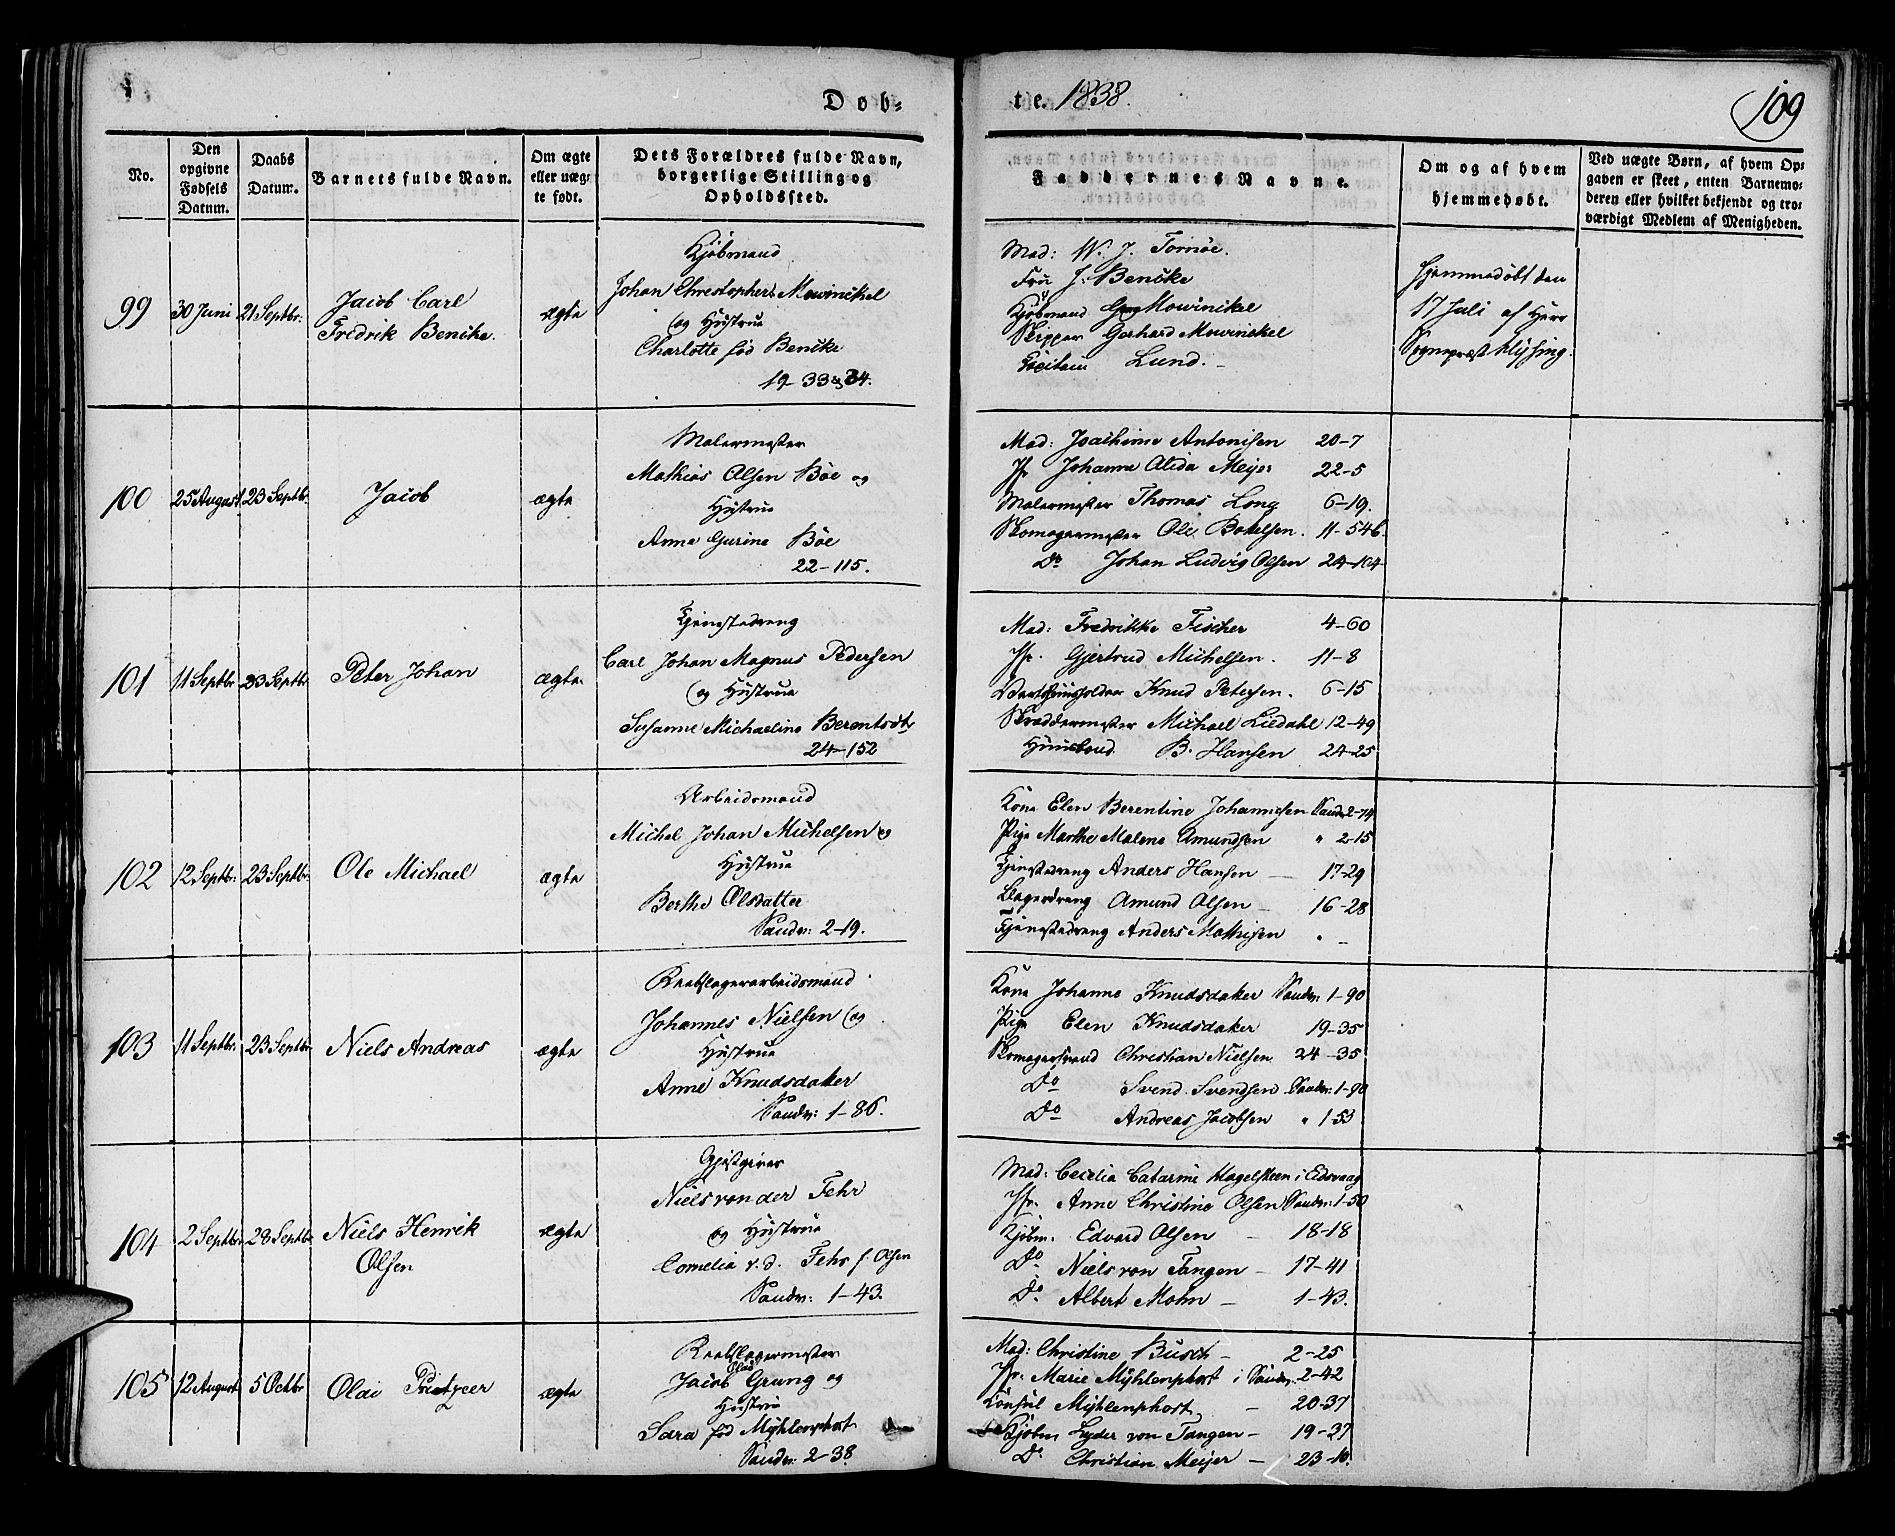 Døb=
te. 1838.
109
No.
Den opgivne Fødsels Datum.
Daabs Datum.
Barnets fulde Navn.
Om ægte eller uægte født.
Dets Forældres fulde Navn, borgerlige Stilling og Opholdssted.
Faddernes Navne.
Om og af hvem hjemmedøbt.
Ved uægte Børn, af hvem Opgaven er skeet, enten Barnemoderen eller hvilket bekjendt og troværdigt Medlem af Menigheden.
99 30 Juni 21 Septbr: Jacob Carl Fredrik Bencke. ægte
Kjøbmand
Johan Christopher Mowinckel
og Hustrue
Charlotte fød Bencke
19-33 & 34.
Mad: W. J. Tornøe.
Fru J. Bencke
Kjøbmand Mowinckel
Skipper Gerhard Mowinckel
Lund.
Hjemmedøbt den
17 Juli af Herr
Sognepræst Klysing.
100 25 August 23 Septbr Jacob ægte
Malermester
Mathias Olsen Bøe og
Hustrue
Anne Gurine Bøe
22-115.
Mad: Joachime Antonisen 20-7
Jfr Johanne Alida Meyer 22-5
Malermester Thomas Long 6-19.
Skomagermester Ole Bokelsen. 11-546.
Do Johan Ludvig Olsen 24-104
101 11 Septbr 23 Septbr Peter Johan ægte
Tjenestedreng
Carl Johan Magnus Pedersen
og Hustrue
Susanne Michaeline Berentsdtr
24-152
Mad: Fredrikke Fischer 4-60
Jfr. Gjertrud Michelsen. 11-8
Knud Petersen. 6-15
Skræddermester Michael Liedahl 12-49
B. Hansen 24-25
102 12 Septbr: 23 Septbr: Ole Michael ægte
Arbeidsmand
Michel Johan Michelsen og
Hustrue
Berthe Olsdatter
Sandv: 2-19.
Kone Elen Berentine Johannesen Sandv 2-14
Pige Marthe Malene Amundsen " 2-15
Tjenestedreng Anders Hansen — 17-29
Bagerdreng Amund Olsen — 16-28
Tjenestedreng Anders Mathisen " —
103 11 Septbr: 23 Septbr Niels Andreas ægte
Reebslagerarbeidsmand
Johannes Nielsen og
Hustrue
Anne Knudsdaker
Sandv: 1-86.
Kone Johanne Knudsdaker Sandv: 1-90
Pige Elen Knudsdaker 19-35
Skomagersvend Christian Nielsen 24-35
Do Svend Svendsen Sandv: 1-90
Do Andreas Jacobsen " 1-53
104 2 Septbr 28 Septbr Niels Henrik Olsen ægte
Gjestgiver
Niels von der Fehr
og Hustrue
Cornelia v. d. Fehr f. Olsen
Sandv: 1-43.
Mad: Cecelia Catarine Hagelsteen i Eidsvaag
Jfr. Anne Christine Olsen Sandv: 1-50
Kjøbm. Edvard Olsen — 18-18
Do Niels von Tangen — 17-41
Do Albert Mohn — 1-43.
105 12 August 5 Octbr Olai Prietzer ægte
Reebslagermester
Olai
Jacob Grung og
Hustrue
Sara fød Mÿhlenphort
Sandv: 2-38
Mad: Christine Busch — 2-25
Jfr. Marie Mÿhlenphort i Sandv: 2-42
Konsul Mÿhlenphort — 20-37
Kjøbm Lyder von Tangen — 19-27
Do Christian Meijer — 23-10.